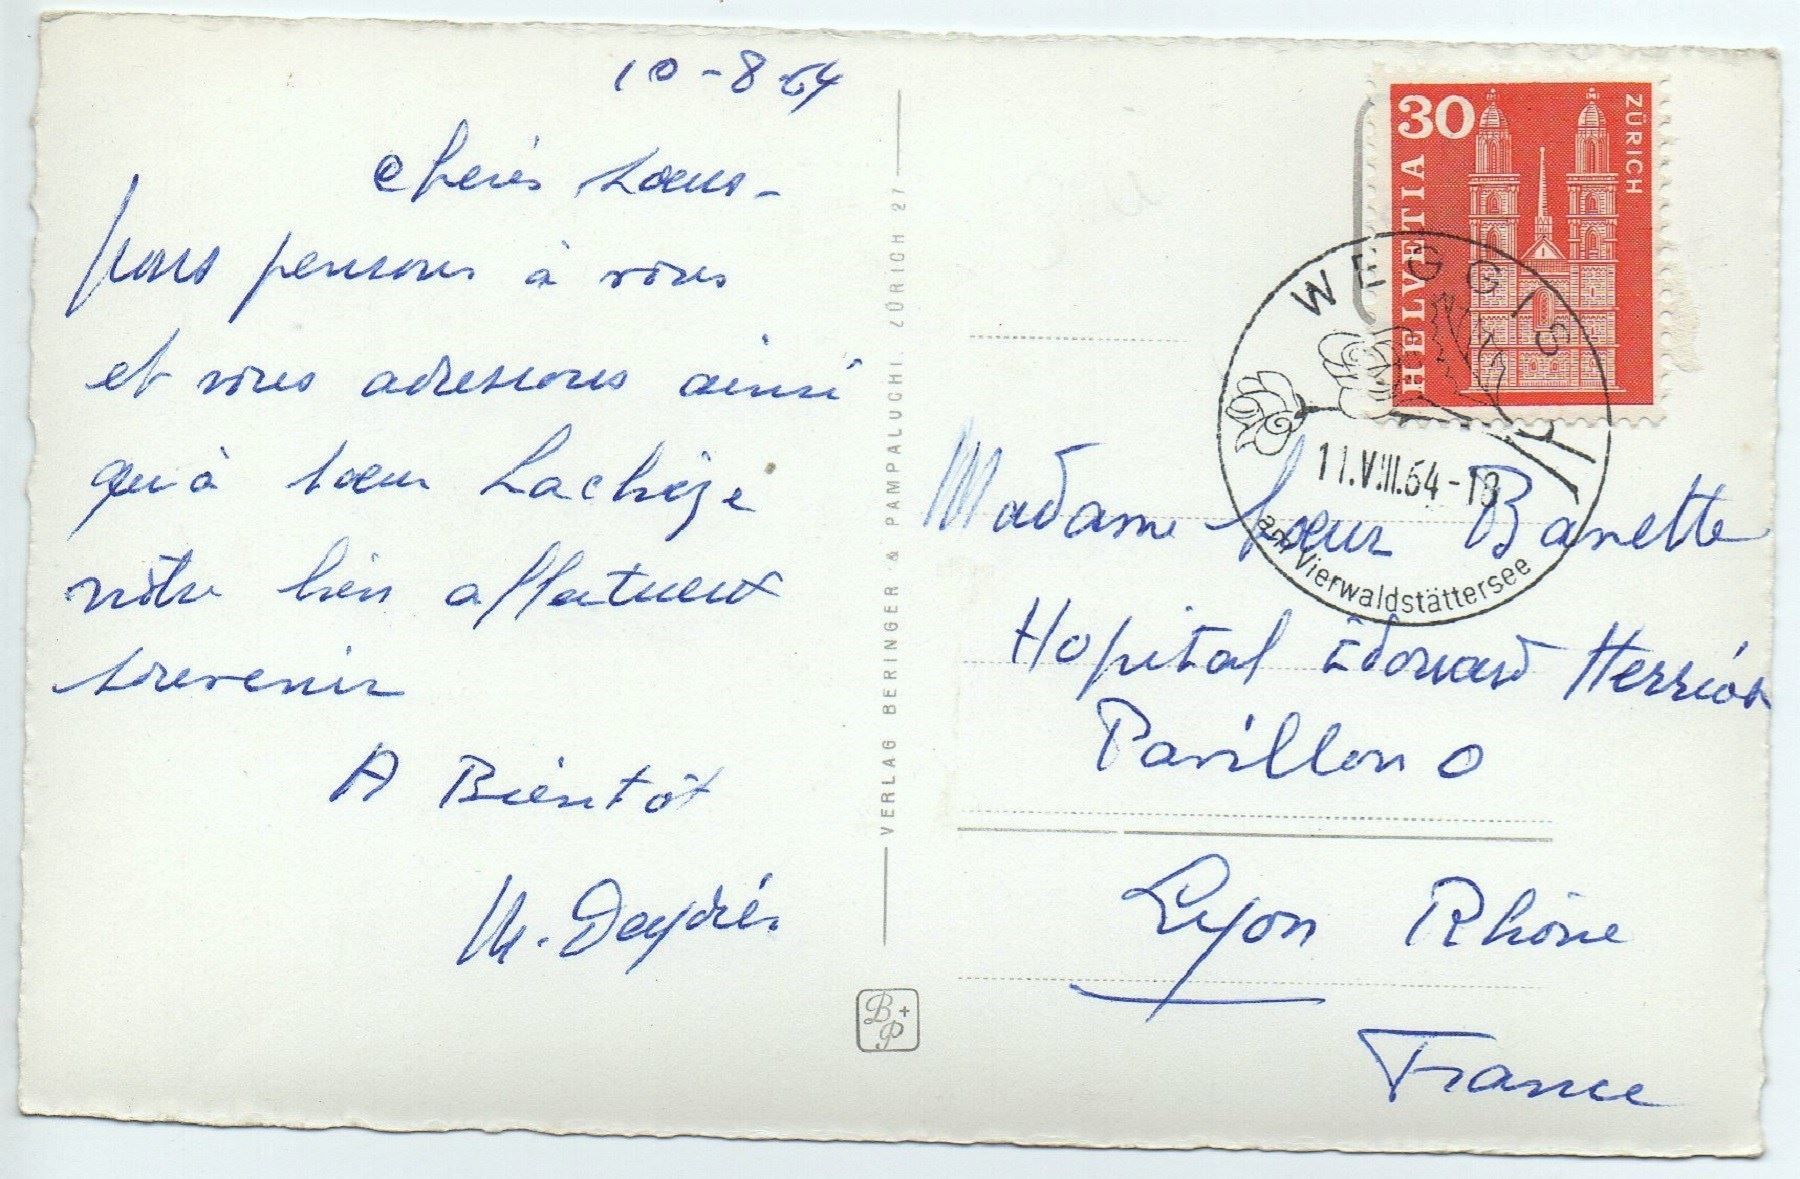 10-8-64
Chères Sœurs -
Nous pensons à vous
et vous adressons ainsi
qu'à sœur
notre bien affectueux
souvenir
A Bientôt
M.
VERLAG BERINGER & PAMPALUCHI, ZÜRICH 27
B+P
30
HELVETIA
ZÜRICH
WEGGIS
11.VIII.64-18
am Vierwaldstättersee
Madame Sœur Banette
Hopital Edouard Herriot
Pavillon O
Lyon Rhône
France